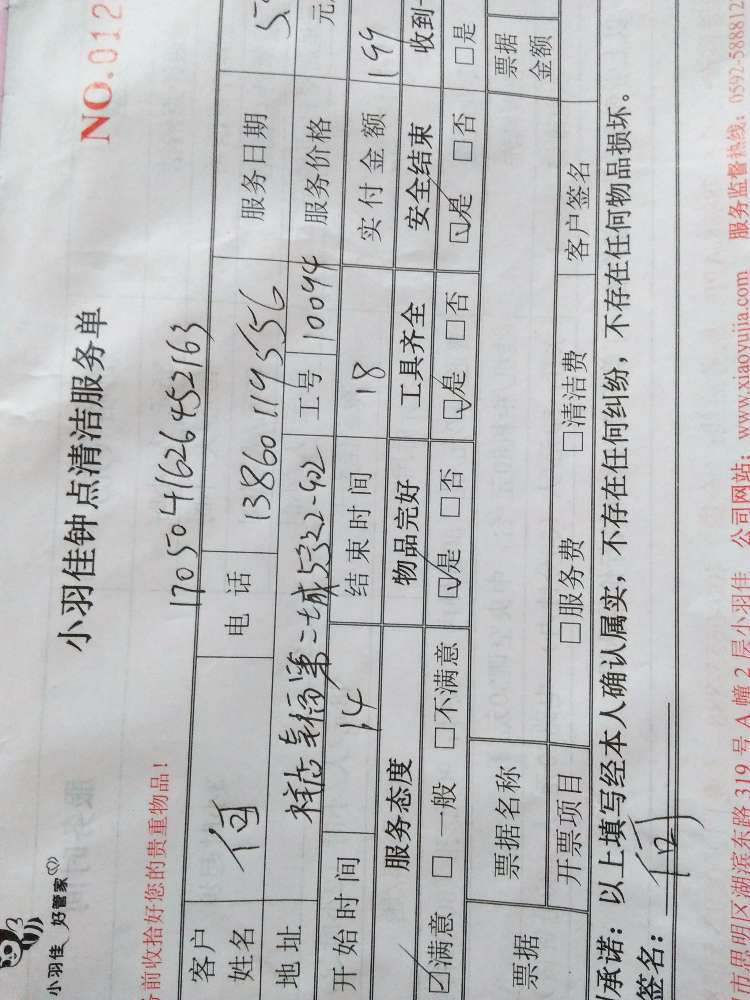 小羽佳 好管家
小羽佳钟点清洁服务单
NO.012
务前收拾好您的贵重物品!
1705041626452163
客户姓名 何 电话 13860119556 服务日期
地址 工号 10094 服务价格 元
开始时间 14 结束时间 18 实付金额 199
服务态度 物品完好 工具齐全 安全结束 收到
☑满意 □一般 □不满意 ☑是 □否 ☑是 □否 ☑是 □否 □是
票据 票据名称 票据金额
开票项目 □服务费 □清洁费 客户签名
承诺:以上填写经本人确认属实,不存在任何纠纷,不存在任何物品损坏。
签名:何
市思明区湖滨东路 319 号 A 幢 2 层小羽佳 公司网站:www.xiaoyujia.com 服务监督热线:0592-588812